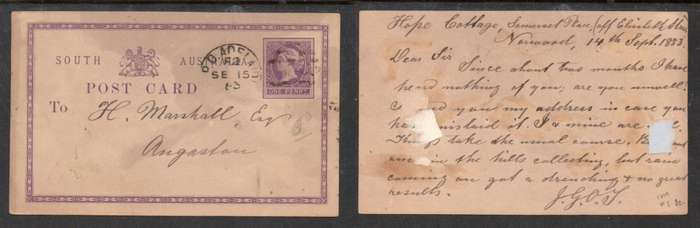 SOUTH AUSTRALIA
ADELAIDE
SE 15
83
ONE PENNY
POST CARD
To H. Marshall, Esq
Angaston
Hope Cottage, Somerset Place, off Elizabeth
Norwood, 14th Sept. 1883.
Dear Sir
Since about two months I have
heard nothing of you; are you unwell?
I send you my address in care you
have mislaid it. I & mine are
Things take the usual course.
in the hills collecting, but rain
coming on got a drenching & no great
results. J.G.O.T.